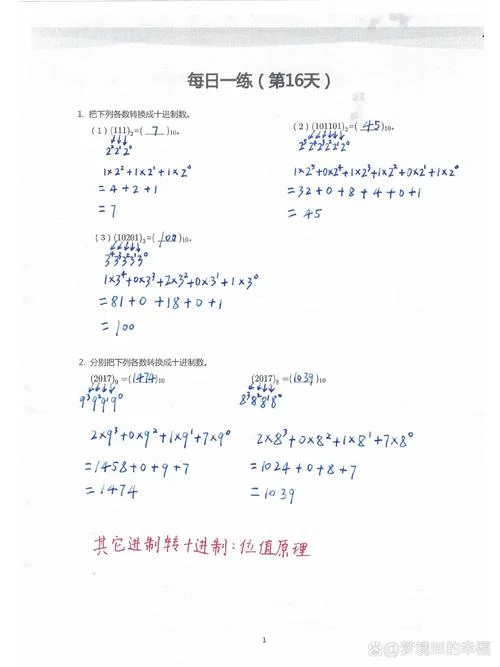 每日一练（第16天）
1. 把下列各数转换成十进制数。
（1）(111)₂=( 7 )₁₀。
2² 2¹ 2⁰
1×2²+1×2¹+1×2⁰
=4+2+1
=7
（2）(101101)₂=( 45 )₁₀。
2⁵2⁴2³2²2¹2⁰
1×2⁵+0×2⁴+1×2³+1×2²+0×2¹+1×2⁰
=32+0+8+4+0+1
=45
（3）(10201)₃=( 100 )₁₀。
3⁴3³3²3¹3⁰
1×3⁴+0×3³+2×3²+0×3¹+1×3⁰
=81+0+18+0+1
=100
2. 分别把下列各数转换成十进制数。
(2017)₉=(1474)₁₀
9³9²9¹9⁰
2×9³+0×9²+1×9¹+7×9⁰
=1458+0+9+7
=1474
(2017)₈=(1039)₁₀
8³8²8¹8⁰
2×8³+0×8²+1×8¹+7×8⁰
=1024+0+8+7
=1039
其它进制转十进制:位值原理
1
@梦境里的幸福